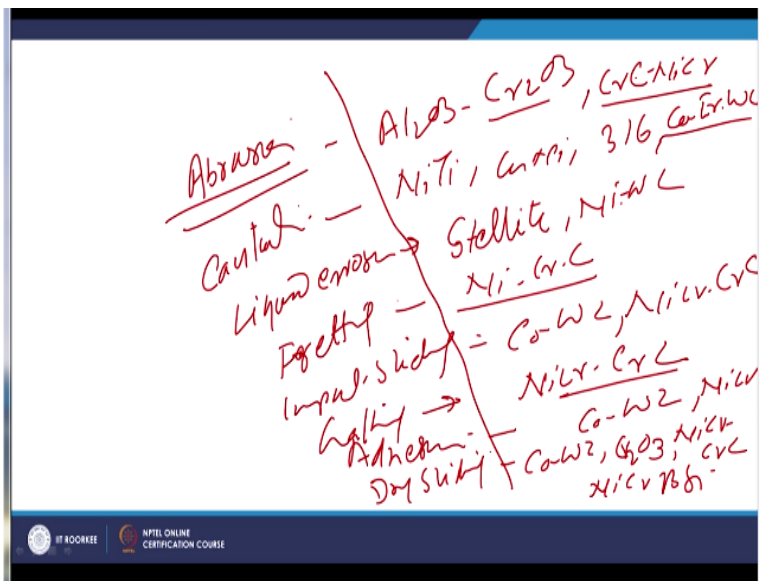 Abrasion - Al2O3 - Cr2O3, CrC-NiCr
Cavitati. - NiTi, 316, Co-Cr.WC
Liquid erosion → Stellite, Ni-WC
Fretting - Ni-Cr.C
Impact-Sliding = Co-WC, NiCr.CrC
Galling → NiCr-CrC
Adhesion. - Co-WC, NiCr
Dry Sliding - Co-WC, Cr2O3, NiCr-CrC
NiCrBSi.
IIT ROORKEE
NPTEL ONLINE
CERTIFICATION COURSE